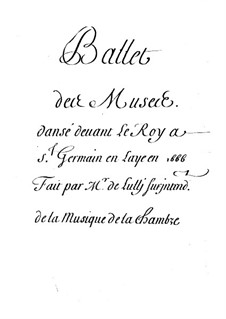 Ballet
des Muses.
dansé devant Le Roy a
St Germain en Laye en 1666
Fait par Mr. de Lully surjntend.
de la Musique de la Chambre